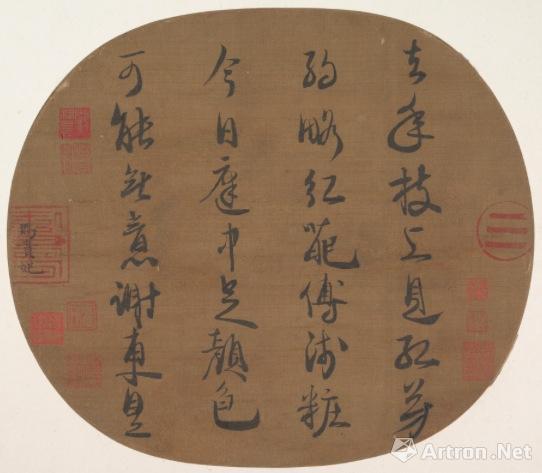 去年枝上見紅芳
約略紅葩傅淺粧
今日庭中足顏色
可能無意謝東皇
賜貴妃
Artron.Net